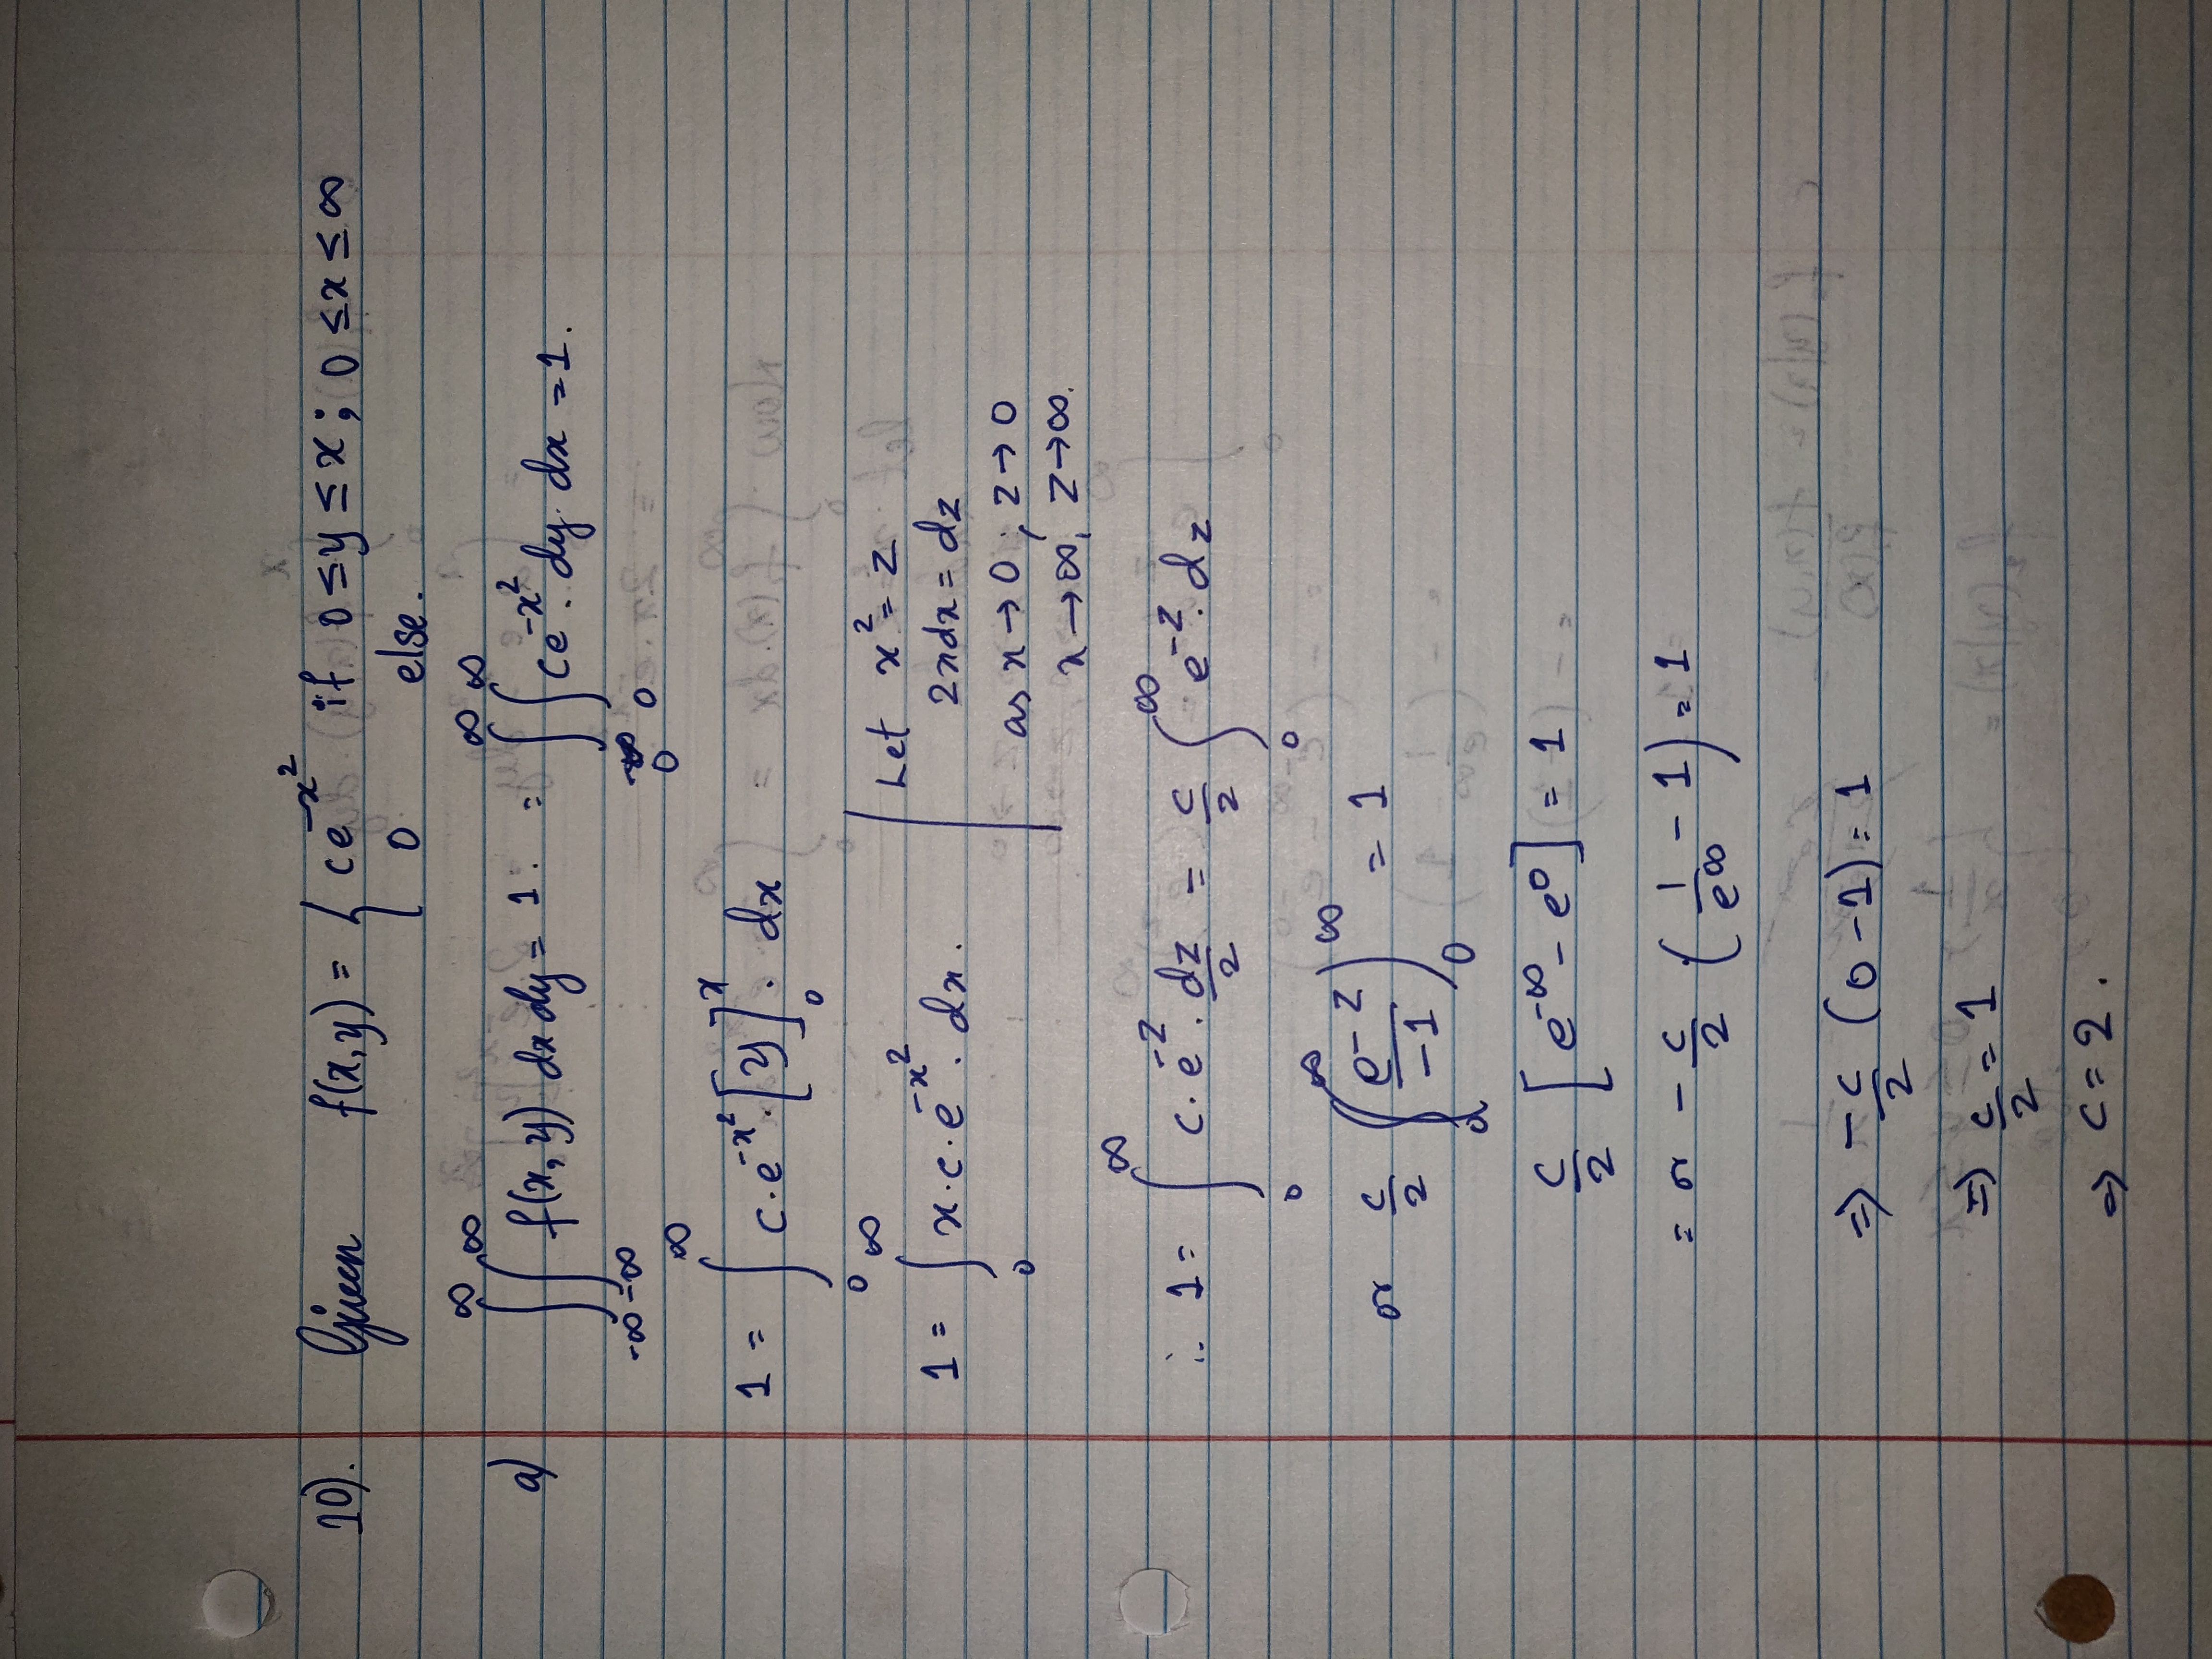 10). Given f(x,y) = { ce^{-x^2} if 0 ≤ y ≤ x ; 0 ≤ x ≤ ∞
0 else.
a) ∫_{-∞}^{∞} ∫_{-∞}^{∞} f(x,y) dx dy = 1. = ∫_{0}^{∞} ∫_{0}^{∞} ce^{-x^2}. dy. dx = 1.
1 = ∫_{0}^{∞} c.e^{-x^2}. [y]_{0}^{x}. dx
1 = ∫_{0}^{∞} x.c.e^{-x^2}. dx.
Let x^2 = z
2xdx = dz
as x → 0 ; z → 0
x → ∞, z → ∞.
∴ 1 = ∫_{0}^{∞} c.e^{-z}. dz/2 = c/2 ∫_{0}^{∞} e^{-z}. dz
or c/2 (e^{-z}/-1)_{0}^{∞} = 1
c/2 [e^{-∞} - e^{0}] = 1
= or -c/2 (1/e^{∞} - 1) = 1
⇒ -c/2 (0 - 1) = 1
⇒ c/2 = 1
⇒ c = 2.